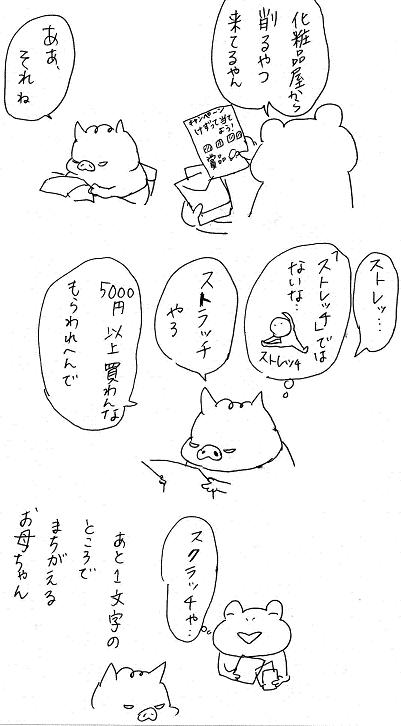 化粧品屋から
削るやつ
来てるやん
キャンペーン
けずって当て
よう!
賞品
ああ、
それね
ストレッ…
「ストレッチ」では
ないな…
ストレッチ
ストラッチ
やろ
5000
円以上買わんな
もらわれへんで
スクラッチや…
あと1文字の
ところで
まちがえる
お母ちゃん